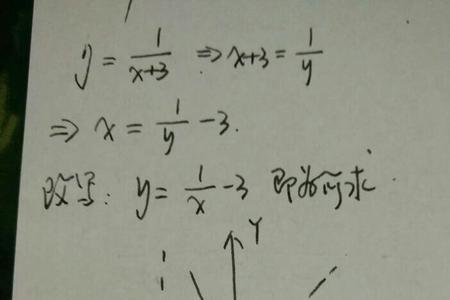 y = 1/(x+3) ⇒ x+3 = 1/y
⇒ x = 1/y - 3.
改写: y = 1/x - 3 即为所求.
Y